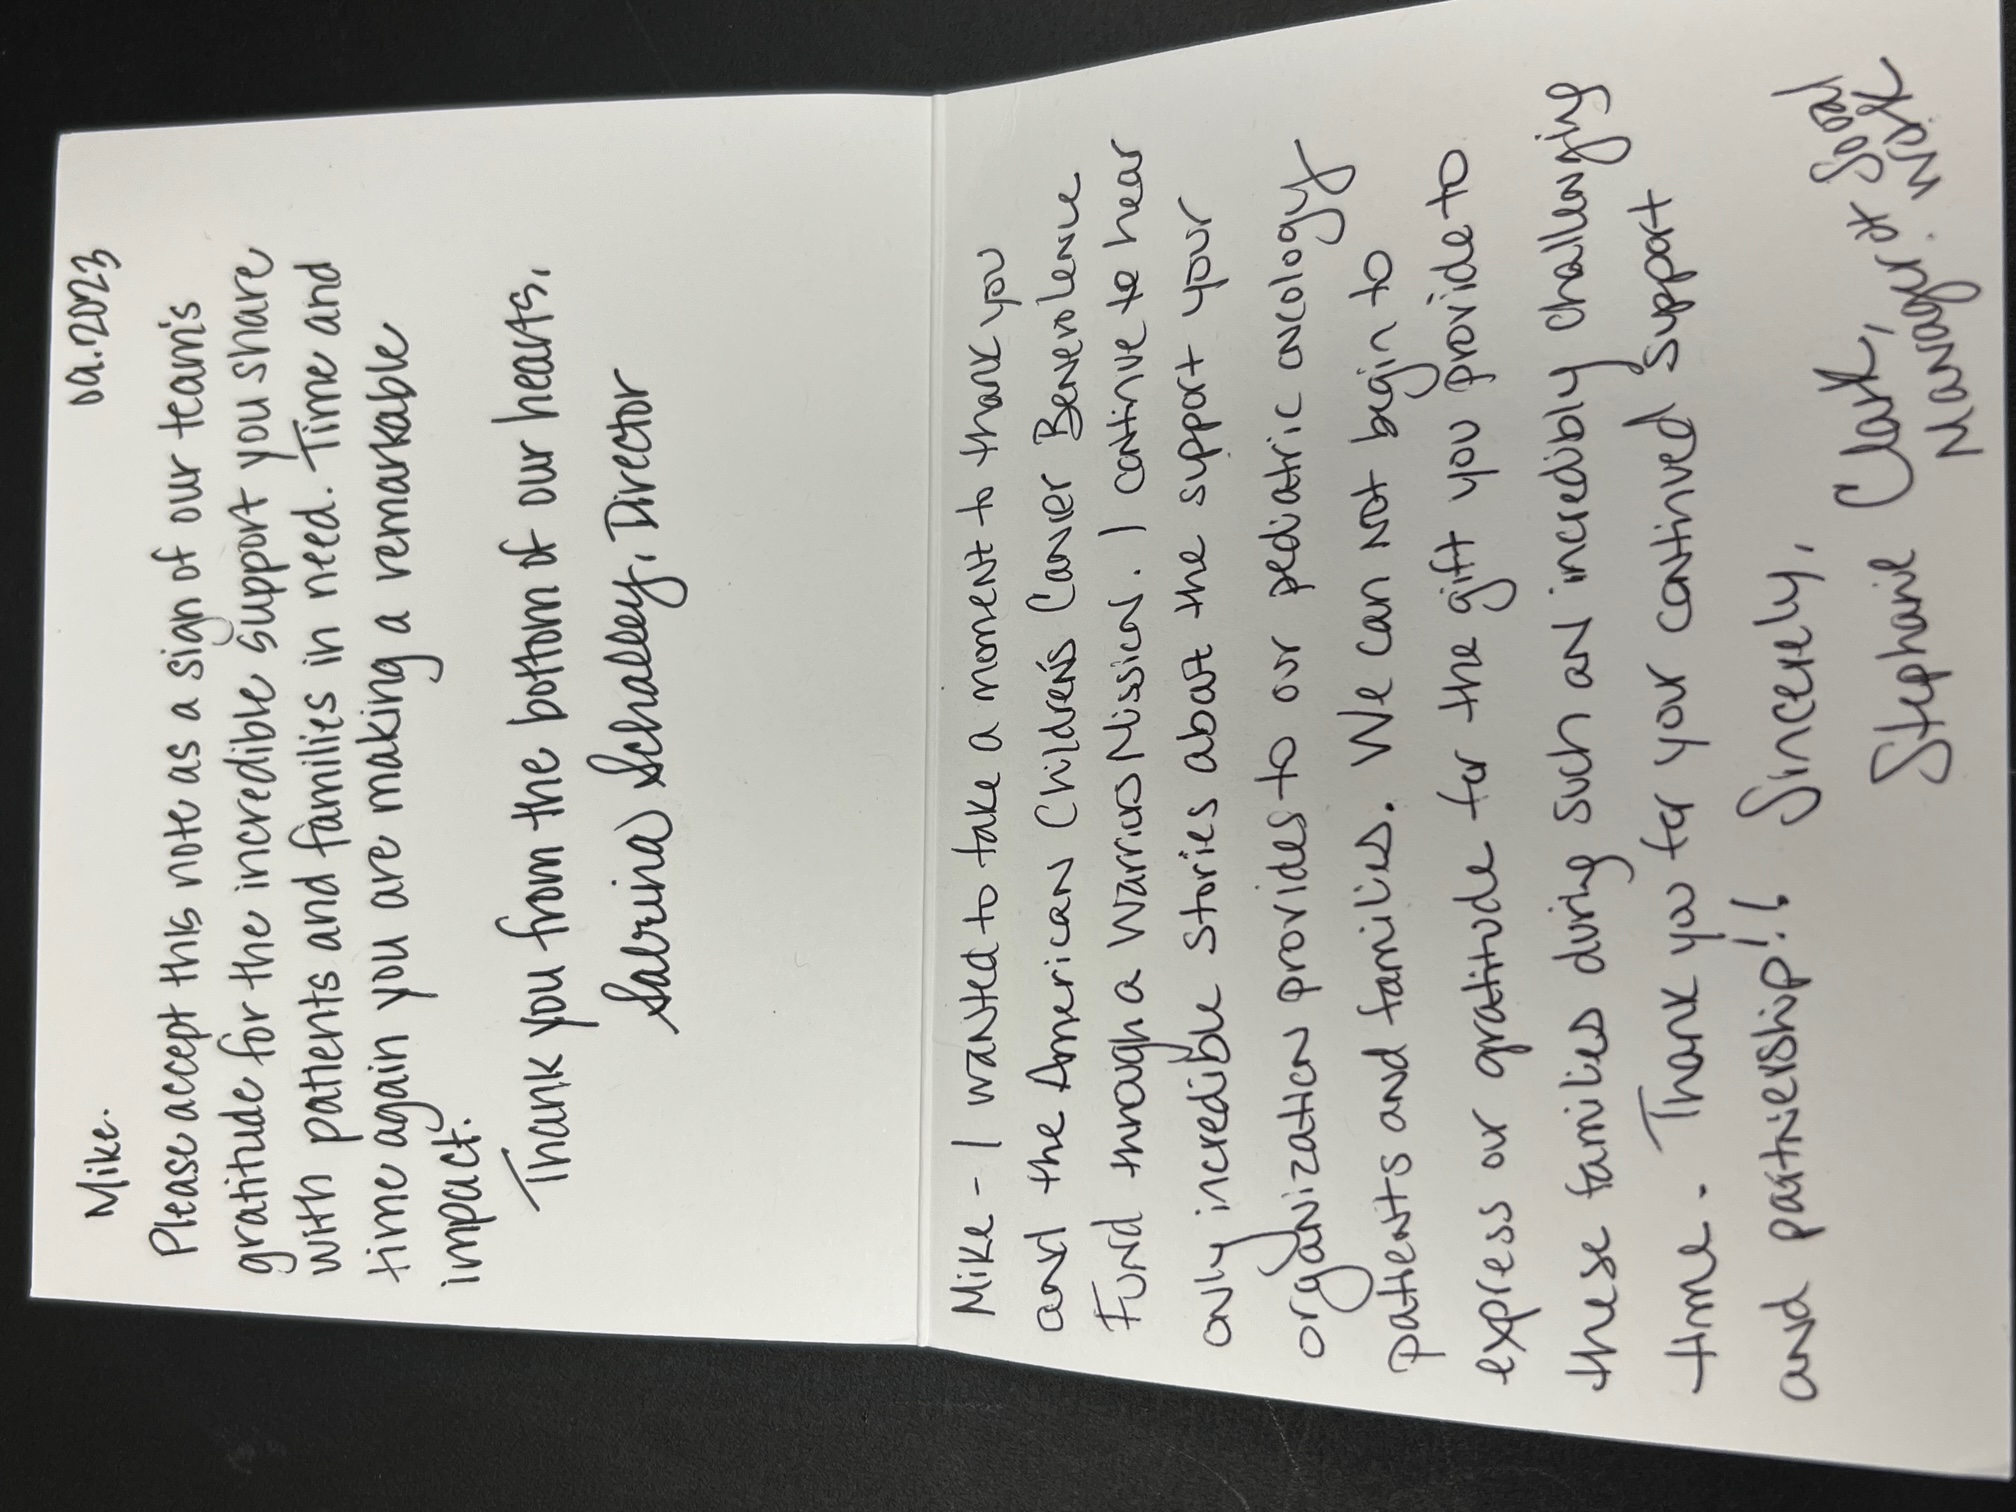 09.2023
Mike.
Please accept this note as a sign of our team's
gratitude for the incredible support you share
with patients and families in need. Time and
time again you are making a remarkable
impact.
Thank you from the bottom of our hearts,
Sabrina Schalley, Director
Mike - I wanted to take a moment to thank you
and the American Children's Cancer Benevolence
Fund through a Warriors Mission. I continue to hear
only incredible stories about the support your
organization provides to our pediatric oncology
patients and families. We can not begin to
express our gratitude for the gift you provide to
these families during such an incredibly challenging
time. Thank you for your continued support
and partnership!! Sincerely,
Stephanie Clark,
Manager of Social
Work